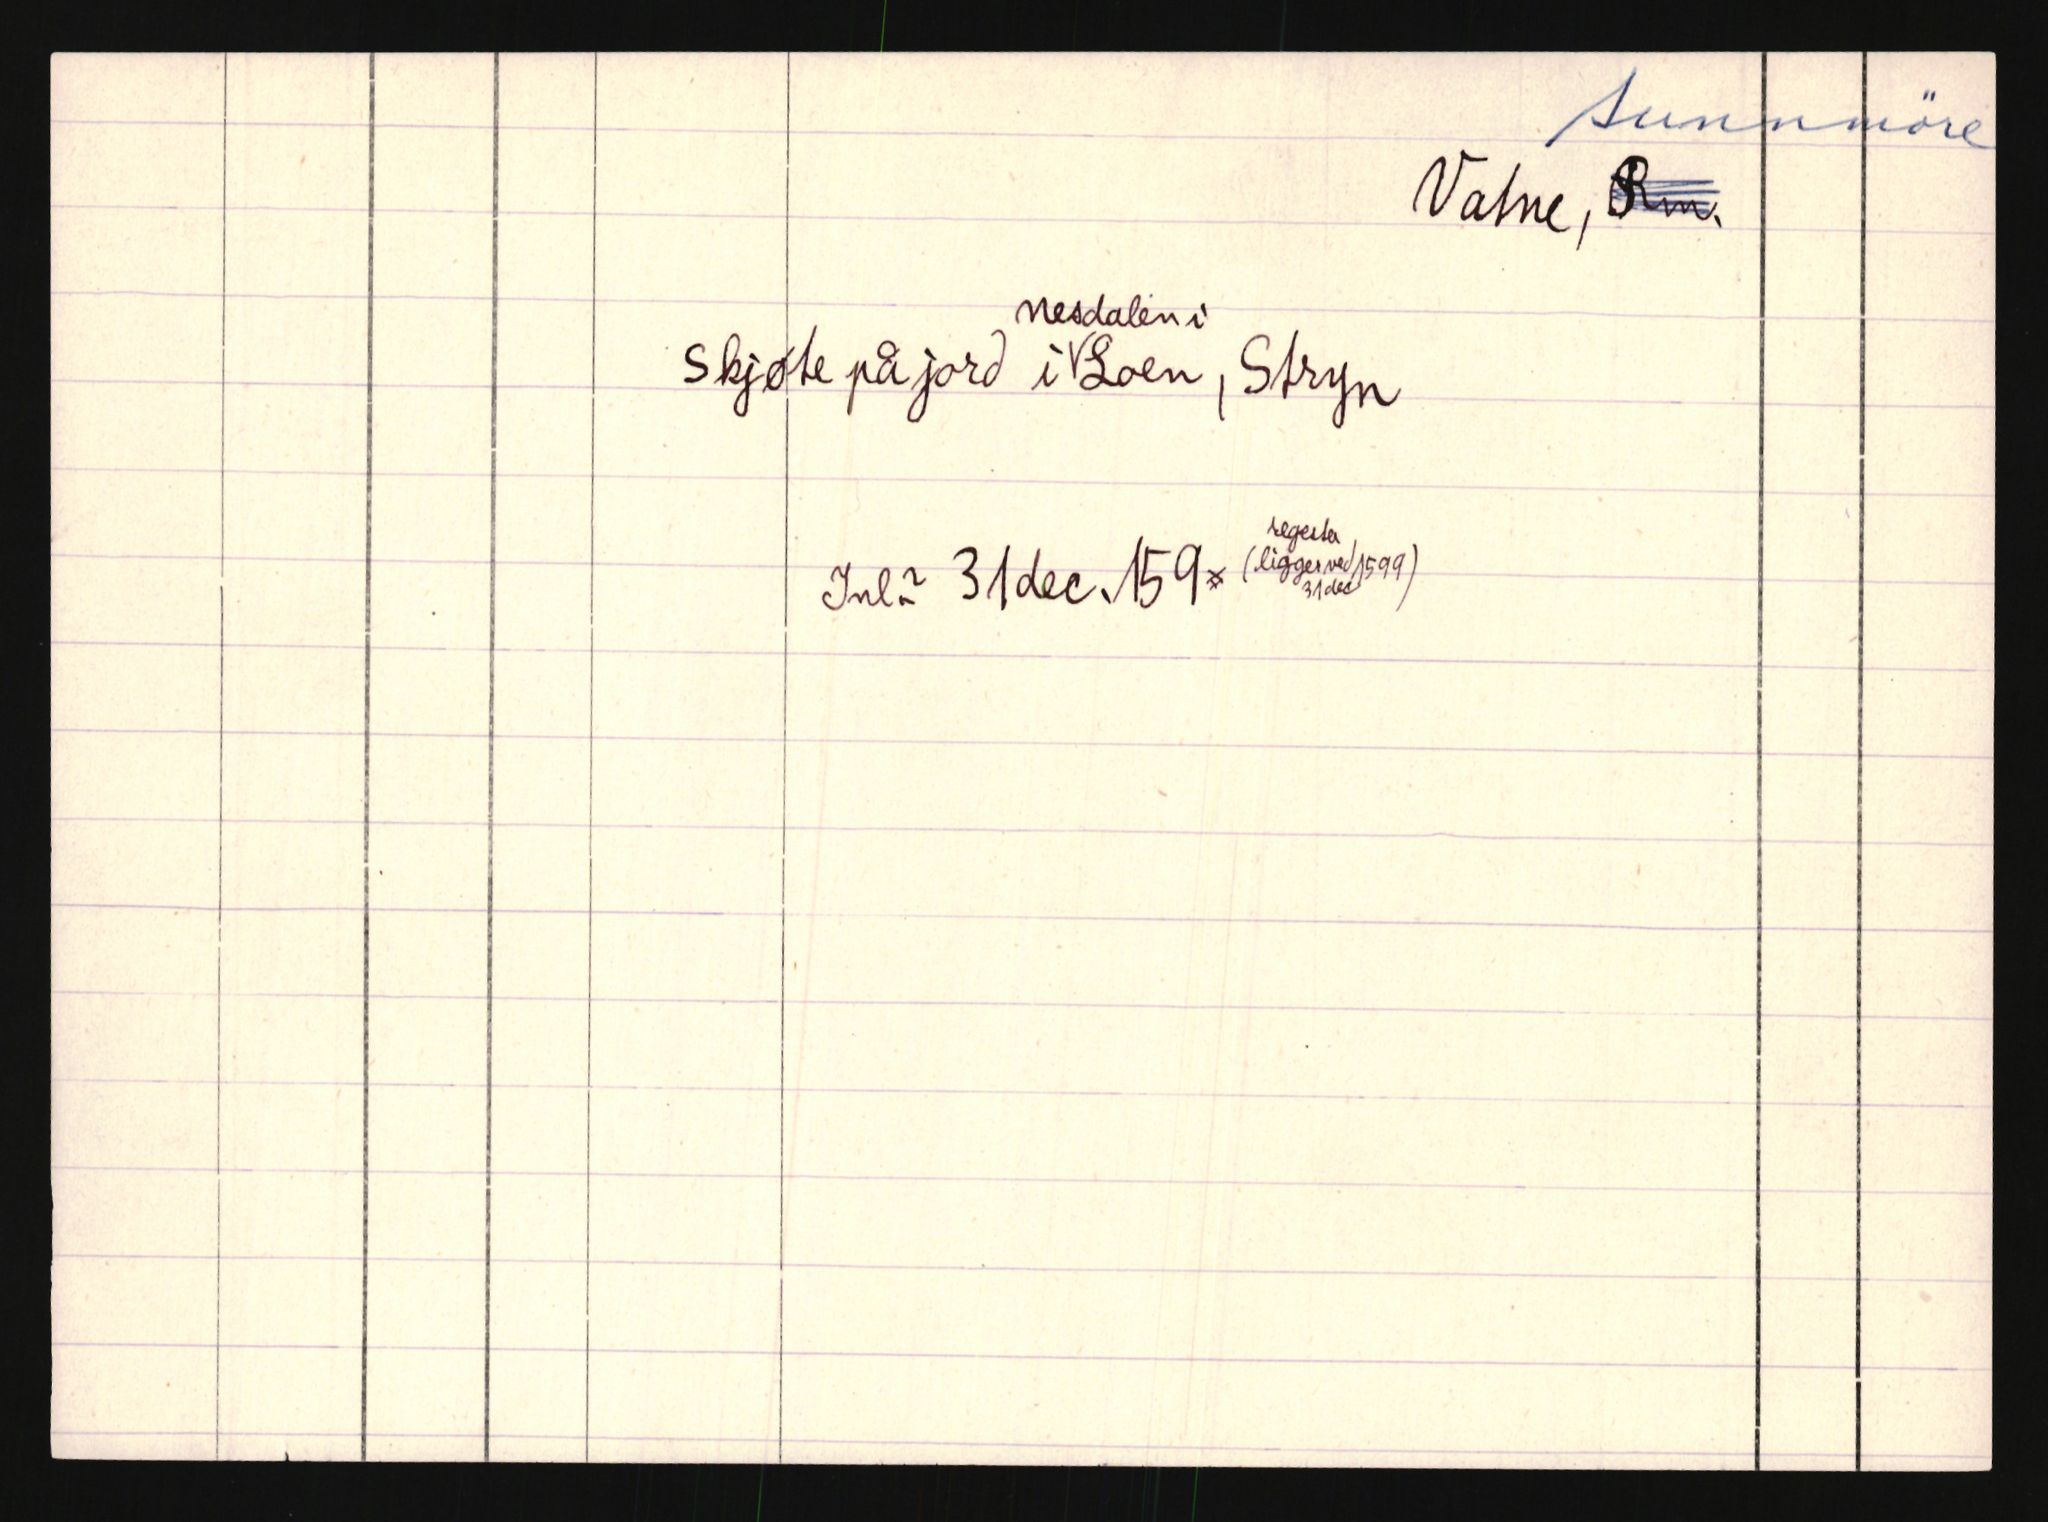 Sunnmöre
Vatne, Rm.
nesdalen i
Skjøte på jord i Loen, Stryn
regesta
31 dec. 159x (ligger ved 1599)
31 dec